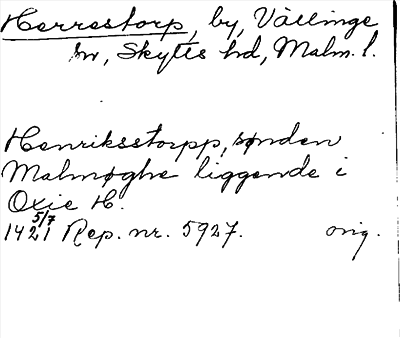 Herrestorp, by, Vällinge
sn, Skytts hd, Malm. l.
Henriksstorpp, sønden
Malmøghe liggende i
Oxie H.
1421 5/7 Rep. nr. 5927. orig.